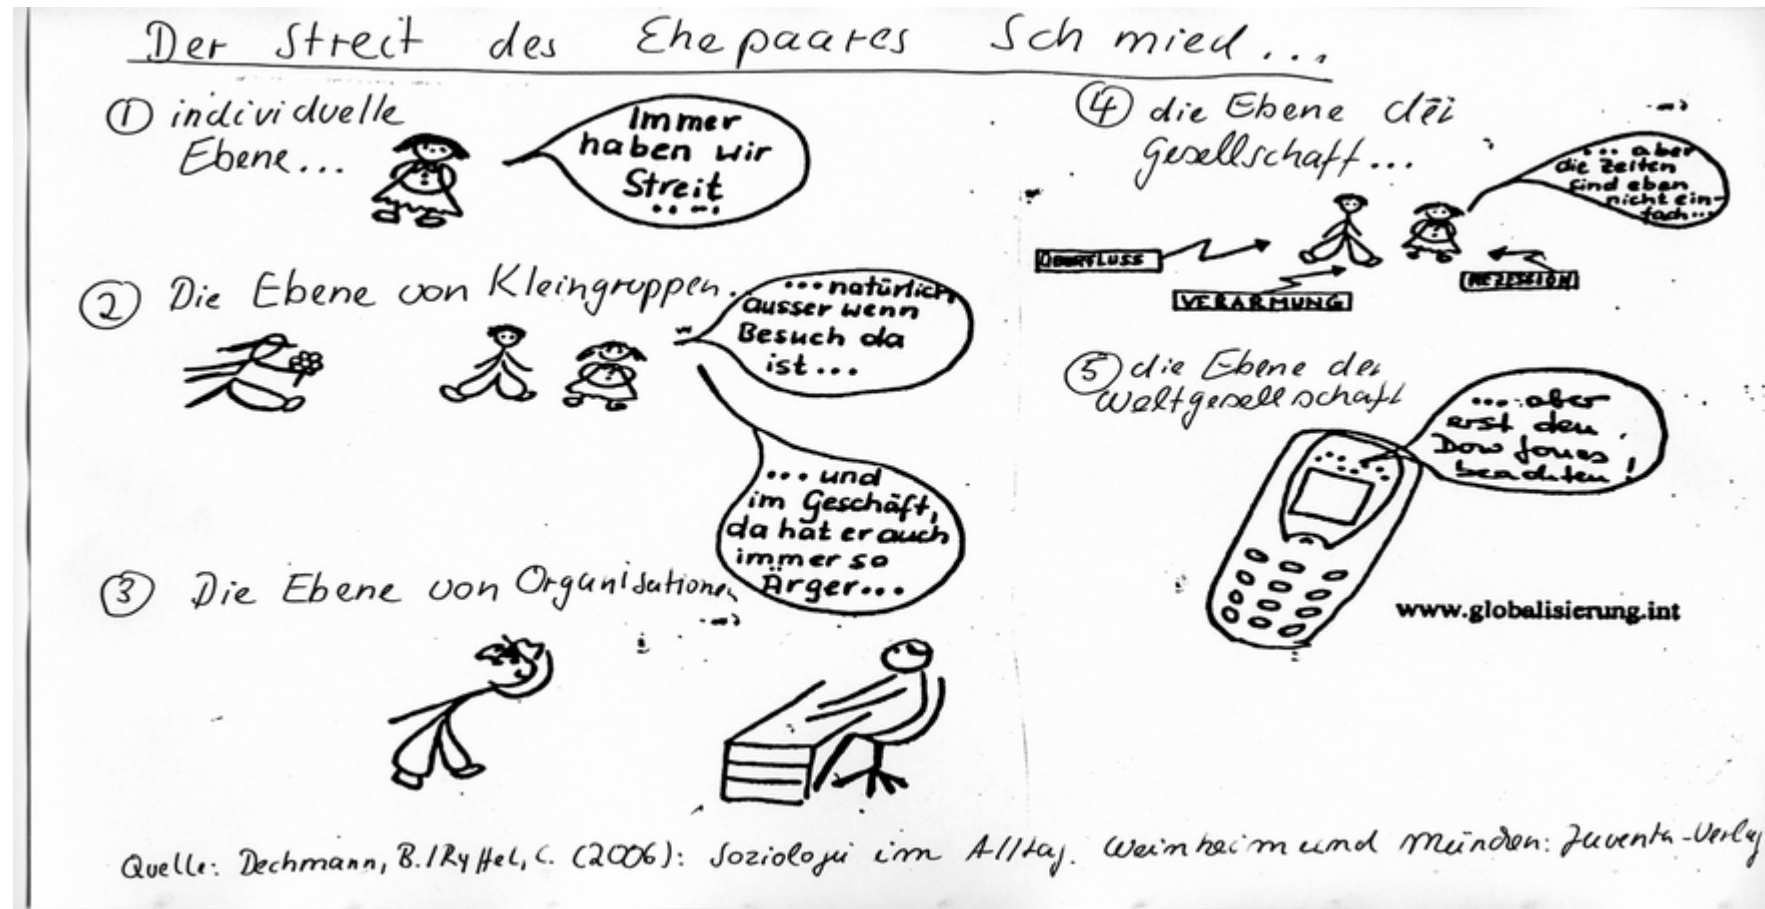 Der Streit des Ehepaares Schmied...
① individuelle
Ebene...
Immer
haben wir
Streit
.....
② Die Ebene von Kleingruppen..
... natürlich,
ausser wenn
Besuch da
ist...
... und
im Geschäft,
da hat er auch
immer so
Ärger...
③ Die Ebene von Organisationen
④ die Ebene der
Gesellschaft...
... aber
die Zeiten
sind eben
nicht ein-
fach...
ÜBERFLUSS
VERARMUNG
REZESSION
⑤ die Ebene der
Weltgesellschaft
... aber
erst den
Dow Jones
beachten!
www.globalisierung.int
Quelle: Dechmann, B./Ryffel, C. (2006): Soziologie im Alltag. Weinheim und München: Juventa-Verlag